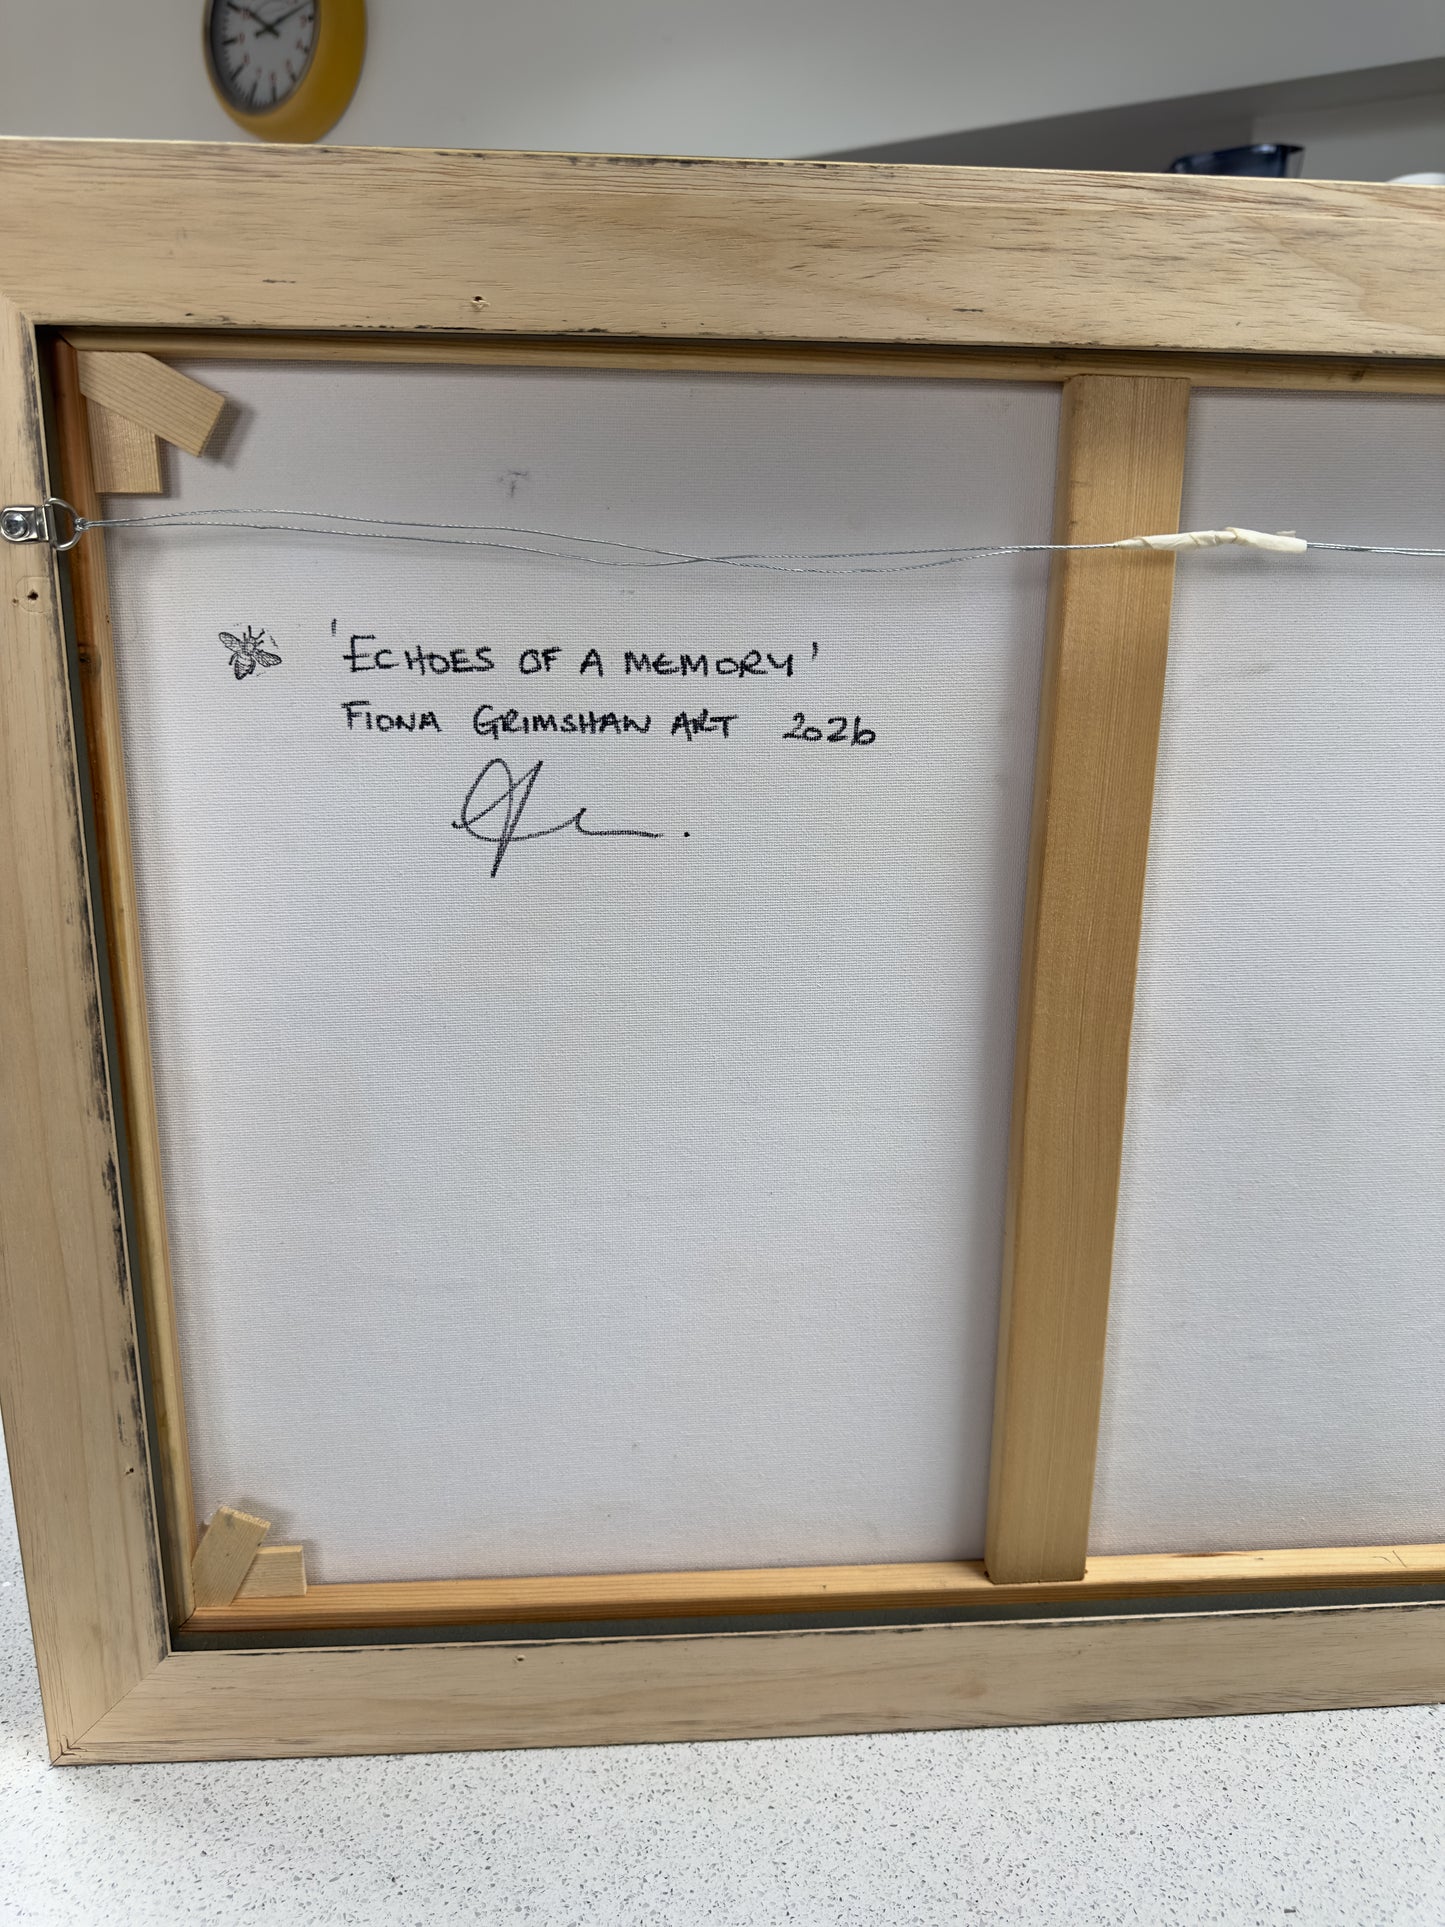 'ECHOES OF A MEMORY'
FIONA GRIMSHAW ART 2026